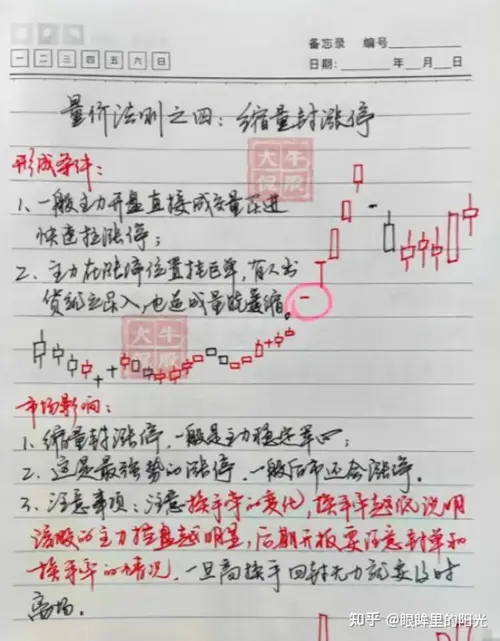 备忘录 编号
一 二 三 四 五 六 日
日期： 年 月 日
量价法则之四：缩量封涨停
大牛
侃股
形成条件：
1、一般主力开盘直接成交量跃进
快速拉涨停；
2、主力在涨停位置挂巨单，有人出
货就立马入，也造成量能萎缩。
大牛
侃股
市场影响：
1、缩量封涨停，一般是主力稳定军心；
2、这是最强势的涨停，一般后市还会涨停。
3、注意事项：注意换手率的变化，换手率越低说明
该股的主力控盘越明显，后期开板要注意封单和
换手率的情况，一旦高换手回封无力就要及时
离场。
知乎 @眼眸里的阳光